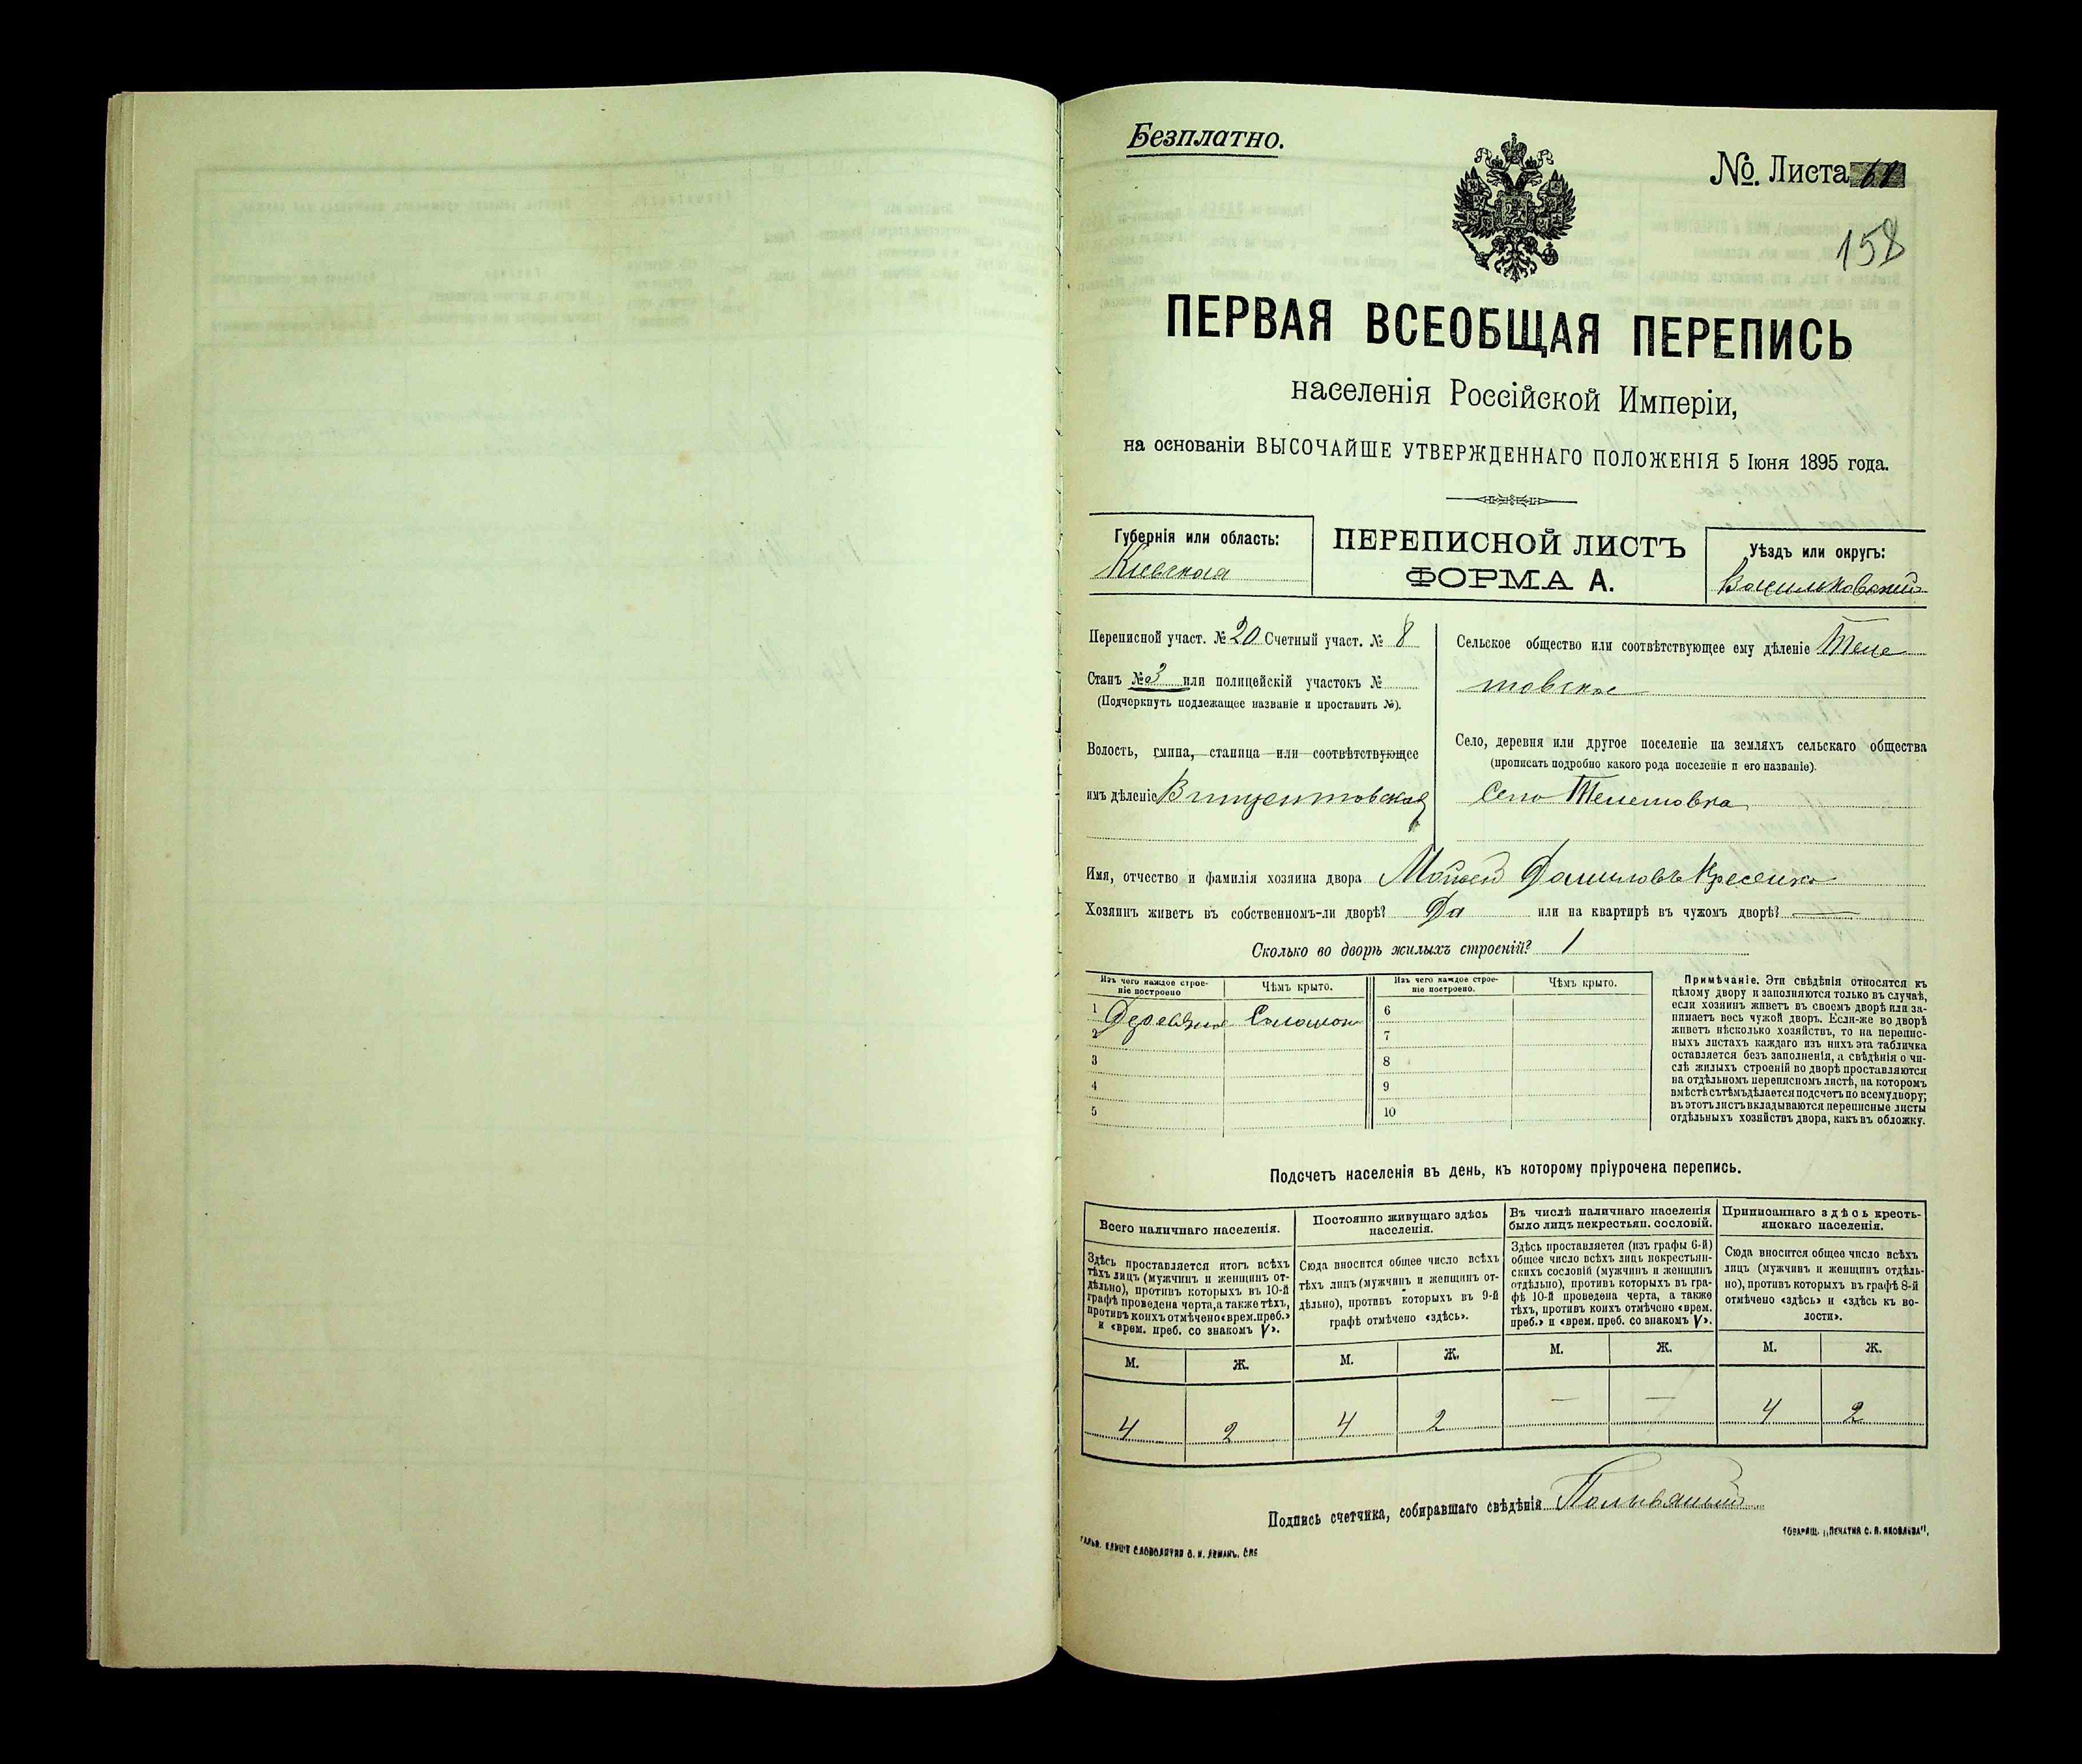 Безплатно.
№ Листа 61
158
ПЕРВАЯ ВСЕОБЩАЯ ПЕРЕПИСЬ
населенія Россійской Имперіи,
на основаніи ВЫСОЧАЙШЕ УТВЕРЖДЕННАГО ПОЛОЖЕНІЯ 5 Іюня 1895 года.
Губернія или область:
Кіевская
ПЕРЕПИСНОЙ ЛИСТЪ
ФОРМА А.
Уѣздъ или округъ:
Васильковскій
Переписной участ. № 20 Счетный участ. № 8
Станъ № 3 или полицейскій участокъ №
(Подчеркнуть подлежащее названіе и проставить №).
Волость, гмина, станица или соотвѣтствующее
имъ дѣленіе Винцентовская
Сельское общество или соотвѣтствующее ему дѣленіе Теле
шовское
Село, деревня или другое поселеніе на земляхъ сельскаго общества
(прописать подробно какого рода поселеніе и его названіе).
Село Телешовка
Имя, отчество и фамилія хозяина двора Мойсей Даниловъ
Хозяинъ живетъ въ собственномъ-ли дворѣ? Да или на квартирѣ въ чужомъ дворѣ? —
Сколько во дворѣ жилыхъ строеній? 1
Изъ чего каждое строе-
ніе построено
Чѣмъ крыто.
1 Деревяное Соломою
2
3
4
5
Изъ чего каждое строе-
ніе построено.
Чѣмъ крыто.
6
7
8
9
10
Примѣчаніе. Эти свѣдѣнія относятся къ
цѣлому двору и заполняются только въ случаѣ,
если хозяинъ живетъ въ своемъ дворѣ или за-
нимаетъ весь чужой дворъ. Если-же во дворѣ
живетъ нѣсколько хозяйствъ, то на перепис-
ныхъ листахъ каждаго изъ нихъ эта табличка
оставляется безъ заполненія, а свѣдѣнія о чи-
слѣ жилыхъ строеній во дворѣ проставляются
на отдѣльномъ переписномъ листѣ, на которомъ
вмѣстѣ съ тѣмъ дѣлается подсчетъ по всему двору;
въ этотъ листъ вкладываются переписные листы
отдѣльныхъ хозяйствъ двора, какъ въ обложку.
Подсчетъ населенія въ день, къ которому пріурочена перепись.
Всего наличнаго населенія.
Здѣсь проставляется итогъ всѣхъ
тѣхъ лицъ (мужчинъ и женщинъ от-
дѣльно), противъ которыхъ въ 10-й
графѣ проведена черта, а также тѣхъ,
противъ коихъ отмѣчено «врем. преб.»
и «врем. преб. со знакомъ V».
Постоянно живущаго здѣсь
населенія.
Сюда вносится общее число всѣхъ
тѣхъ лицъ (мужчинъ и женщинъ от-
дѣльно), противъ которыхъ въ 9-й
графѣ отмѣчено «здѣсь».
Въ числѣ наличнаго населенія
было лицъ некрестьян. сословій.
Здѣсь проставляется (изъ графы 6-й)
общее число всѣхъ лицъ некрестьян-
скихъ сословій (мужчинъ и женщинъ
отдѣльно), противъ которыхъ въ гра-
фѣ 10-й проведена черта, а также
тѣхъ, противъ коихъ отмѣчено «врем.
преб.» и «врем. преб. со знакомъ V».
Приписаннаго здѣсь кресть-
янскаго населенія.
Сюда вносится общее число всѣхъ
лицъ (мужчинъ и женщинъ отдѣль-
но), противъ которыхъ въ графѣ 8-й
отмѣчено «здѣсь» и «здѣсь къ во-
лости».
М. Ж. М. Ж. М. Ж. М. Ж.
4 2 4 2 — — 4 2
Подпись счетчика, собиравшаго свѣдѣнія
ГАЛЬВ. КЛИШЕ СЛОВОЛИТНИ О. И. ЛЕМАНЪ, СПБ
ТОВАРИЩ. „ПЕЧАТНЯ С. П. ЯКОВЛЕВА“.